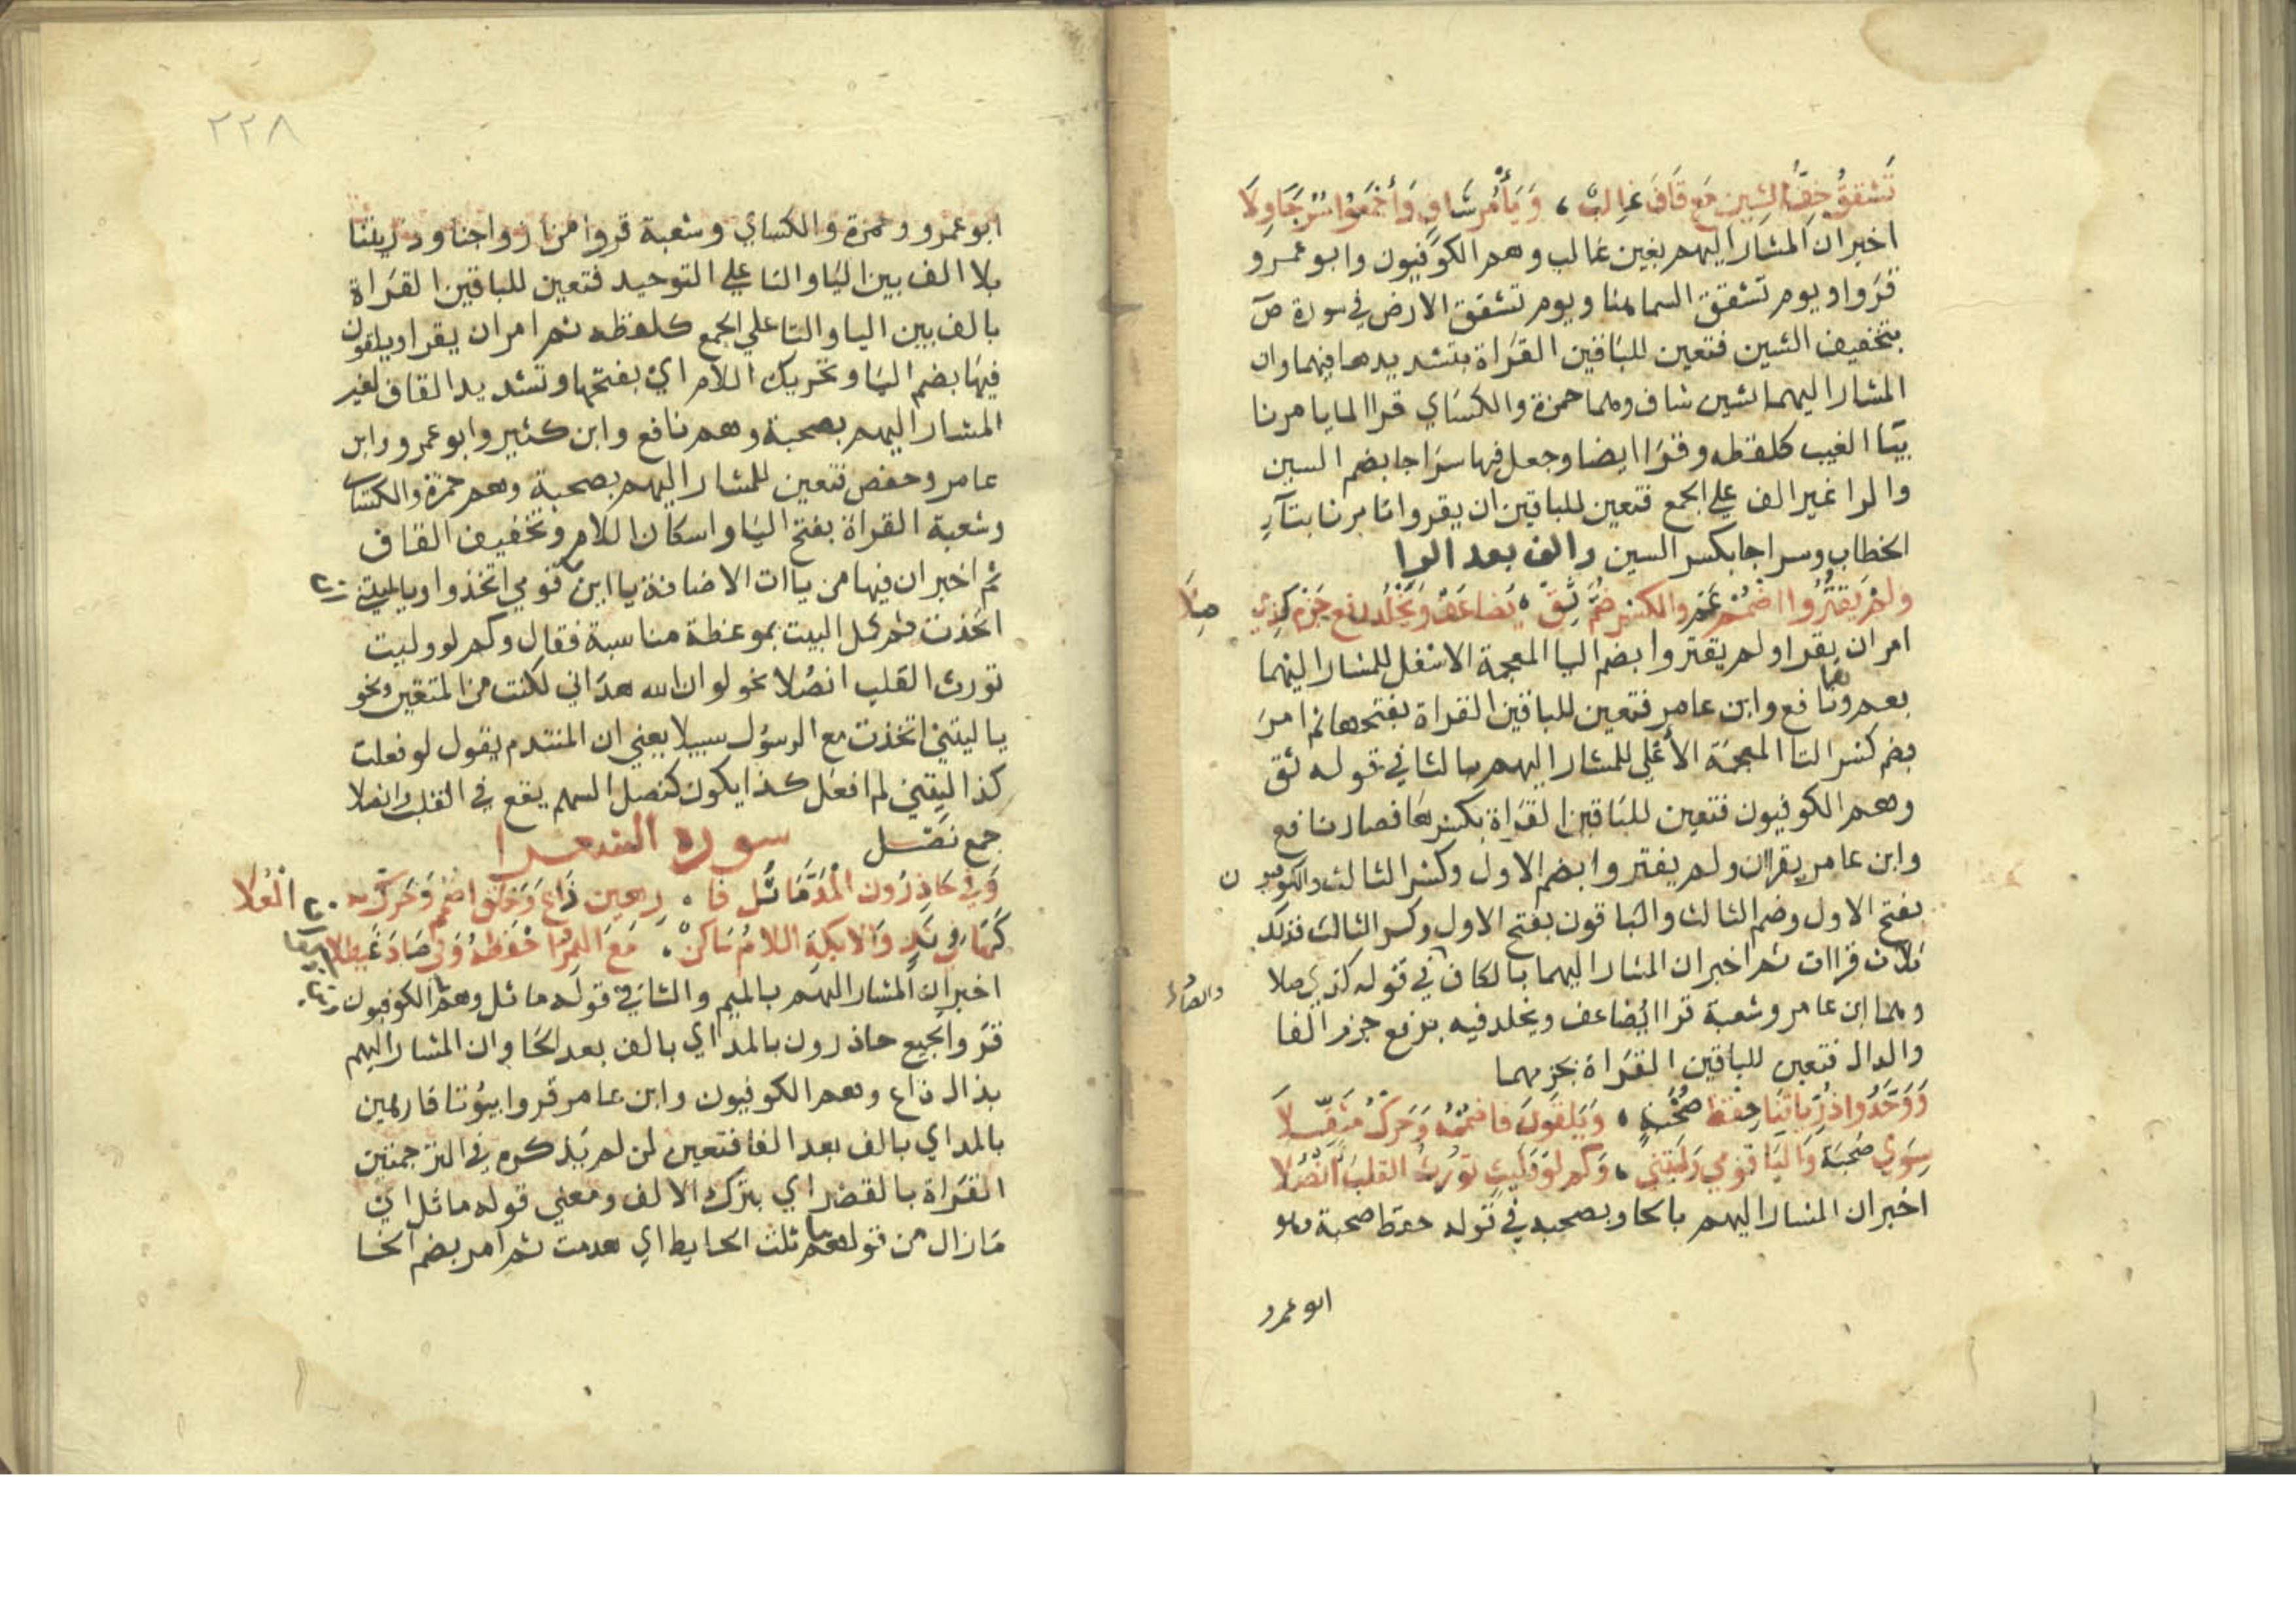 تَشَقَّقُ خِفُّ الشِين مَع قَافَ غَالِبٌ، وَيَأْمُر شَافٍ وَاجْمَعُوا سُرُجًا وِلَا
اخبر ان المشار اليهم بغين غالب وهم الكوفيون وابو عمرو
قروا ويوم تشقق السما هنا ويوم تشقق الارض في سورة ص
بتخفيف الشين فتعين للباقين القراة بتشديدها فيهما وان
المشار اليهما بشين شاف وهما حمزة والكساي قرا لما يامرنا
بيا الغيب كلفظه وقرا ايضا وجعل فيها سرجا بضم السين
والرا غير الف علي الجمع فتعين للباقين ان يقروا تامرنا بتآء
الخطاب وسراجا بكسر السين والف بعد الرا
ولم يَقتُرُوا اضمُمْ عَمَّ والكسرَ ضُمَّ ثِقْ، يُضاعَفْ وَيَخْلُدْ رفع جَزمٍ كذي صِلَا
امر ان يقرا ولم يقتروا بضم اليا المعجمة الاسفل للمشار اليهما
بعم وهما نافع وابن عامر فتعين للباقين القراة بفتحها ثم امر
بضم كسر التا المعجمة الأعلي للمشار اليهم بالثا في قوله ثق
وهم الكوفيون فتعين للباقين القراة بكسرها فصار نافع
وابن عامر يقران ولم يقتروا بضم الاول وكسر الثالث والكوفيون
بفتح الاول وضم الثالث والباقون بفتح الاول وكسر الثالث فذلك
ثلاث قراات ثم اخبر ان المشار اليهما بالكاف والصاد في قوله كذي صلا
وهما ابن عامر وشعبة قرا ايضاعف ويخلد فيه برفع جزم الفا
والدال فتعين للباقين القراة بجزمهما
وَوَحَّدُوا ذُرِّيَّاتِنَا حِفْظُ صُحْبَةٍ، وَيَلْقَونَ فاضمُمْهُ وَحَرِّكْ مُثَقَّلَا
سِوَي صُحبَة وَاليَا قومي وَلَيتَنِي، وَكم لَو وَلَيتٍ تُورِثُ القلبَ انْصُلا
اخبر ان المشار اليهم بالحا وبصحبه في قوله حفظ صحبة وهو
ابو عمرو
٢٢٨
ابو عمرو وحمزة والكساي وشعبة قروا من ازواجنا وذريتنا
بلا الف بين اليا والتا علي التوحيد فتعين للباقين القراة
بالف بين اليا والتا علي الجمع كلفظه ثم امر ان يقرا ويلقون
فيها بضم اليا وتحريك اللام اي بفتحها وتشديد القاف لغير
المشار اليهم بصحبة وهم نافع وابن كثير وابو عمرو وابن
عامر وحفص فتعين للمشار اليهم بصحبة وهم حمزة والكساي
وشعبة القراة بفتح اليا واسكان اللام وتخفيف القاف
ثم اخبر ان فيها من ياات الاضافة يا اين قومي اتخذوا ويا ليتني
اتخذت ثم كمل البيت بموعظة مناسبة فقال وكم لو وليت
تورث القلب انصلا نحو لو ان الله هداني لكنت من المتقين ونحو
يا ليتني اتخذت مع الرسول سبيلا يعني ان المتندم يقول لو فعلت
كذا ليتني لم افعل كذا يكون كنصل السهم يقع في القلب وانصلا
جمع نصل سورة الشعرا
وَفي حَاذِرُون المَدُّ مَا ثُلَّ فَا، رِهِين ذَاعَ وَخَلْقُ اضْمُمْ وَحَرِّكْ به العُلا
كَمَا في نَدٍ وَالايكةِ اللامُ سَاكنٌ، مَعَ الهَمْزِ اخْفِضْهُ وَفي صَادَ غَيطلا
اخبر ان المشار اليهم بالميم والثا في قوله ما ثل وهم الكوفيون
قروا لجميع حاذرون بالمد اي بالف بعد الحا وان المشار اليهم
بذال ذاع وهم الكوفيون وابن عامر قروا بيوتا فارهين
بالمد اي بالف بعد الفا فتعين لمن لم يذكره في الترجمتين
القراة بالقصر اي بترك الالف ومعني قوله ما ثل اي
ما زال من قولهم ثلث الحايط اي هدمت ثم امر بضم الخا